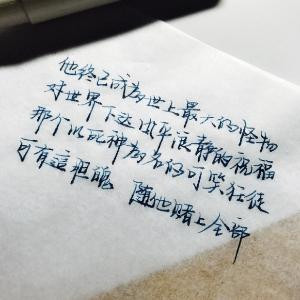 他终已成為世上最大的怪物
对世界下达风平浪静的祝福
那个以死神為名的可笑狂徒
可有這胆魄 随他赌上全部